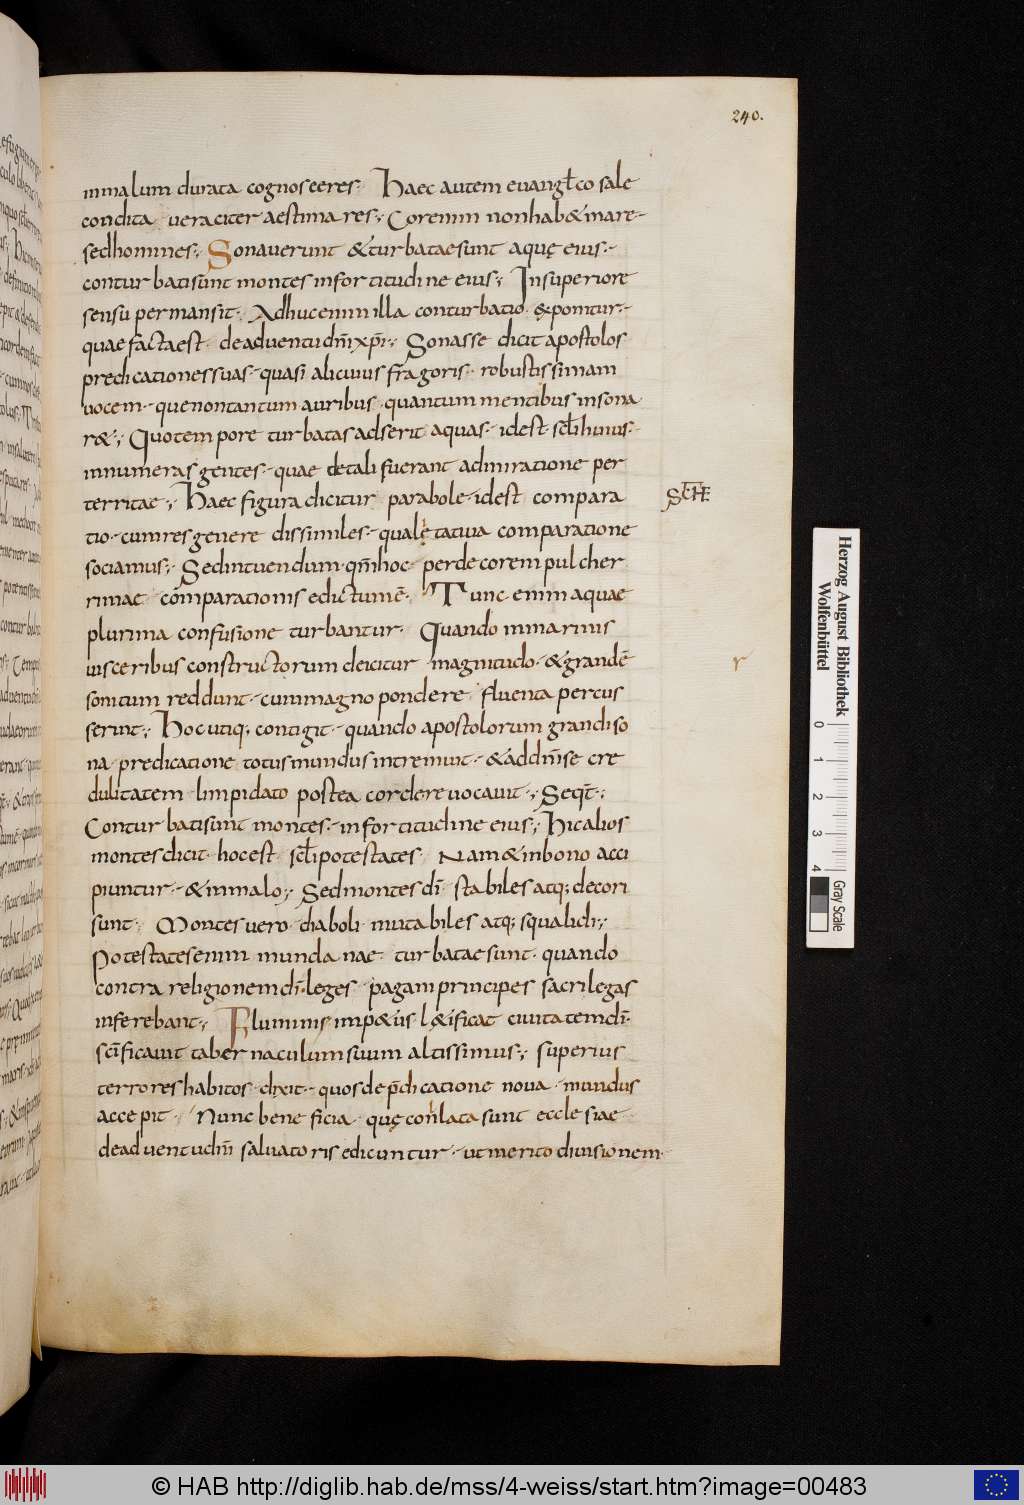 240.
inmalum durata cognosceres· Haec autem euangl̄co sale
condita ueraciter aestimares·, Corenim nonhab& mare·
sedhomines·, Sonauerunt &turbataesunt aquę eius·
conturbatisunt montes infortitudine eius·, Insuperiore
sensu permansit· Adhucenim illa conturbatio exponitur·
quaefactaest· deaduentu dn̄i xp̄i·, Sonasse dicit apostolos
predicationessuas· quasi alicuius fragoris· robustissimam
uocem· quenontantum auribus quantum mentibus insona
r&·, Quotempore turbatas adserit aquas· idest scl̄ihuius·
innumeras gentes· quae detali fuerant admiratione per
territae·, Haec figura dicitur parabole· idest compara
tio· cumres genere dissimiles· qualętatiua comparatione
sociamus·, Sedintuendum· qm̄hoc perdecorem pulcher
rimae comparationis edictumē· Tunc enim aquae
plurima confusione turbantur· Quando inmarinis
uisceribus constructorum deicitur magnitudo· &grandē
sonitum reddunt· cummagno pondere fluenta percus
serint·, Hoc utiq; contigit· quando apostolorum grandiso
na predicatione totusmundus intremuit· &addn̄i se cre
dulitatem limpidato postea corde reuocauit·, Seqt̄·,
Conturbatisunt montes· infortitudine eius·, Hicalios
montes dicit· hocest scl̄i potestates· Nam &inbono acci
piuntur· &inmalo·, Sedmontes dī stabiles atq; decori
sunt· Montes uero diaboli mutabiles atq; squalidi·,
Potestatesenim mundanae turbataesunt· quando
contra religionemdī·leges pagani principes sacrilegas
inferebant·, Fluminis imp&us l&ificat ciuitatemdī·
scīficauit tabernaculumsuum altissimus·, superius
terrores habitos dixit· quosdep̄dicatione noua mundus
accepit· Nunc beneficia· quę conlata sunt ecclesiae
deaduentudn̄i saluatoris edicuntur· utmerito diuisionem·
Herzog August Bibliothek
Wolfenbüttel
0 1 2 3 4
Gray Scale
© HAB http://diglib.hab.de/mss/4-weiss/start.htm?image=00483